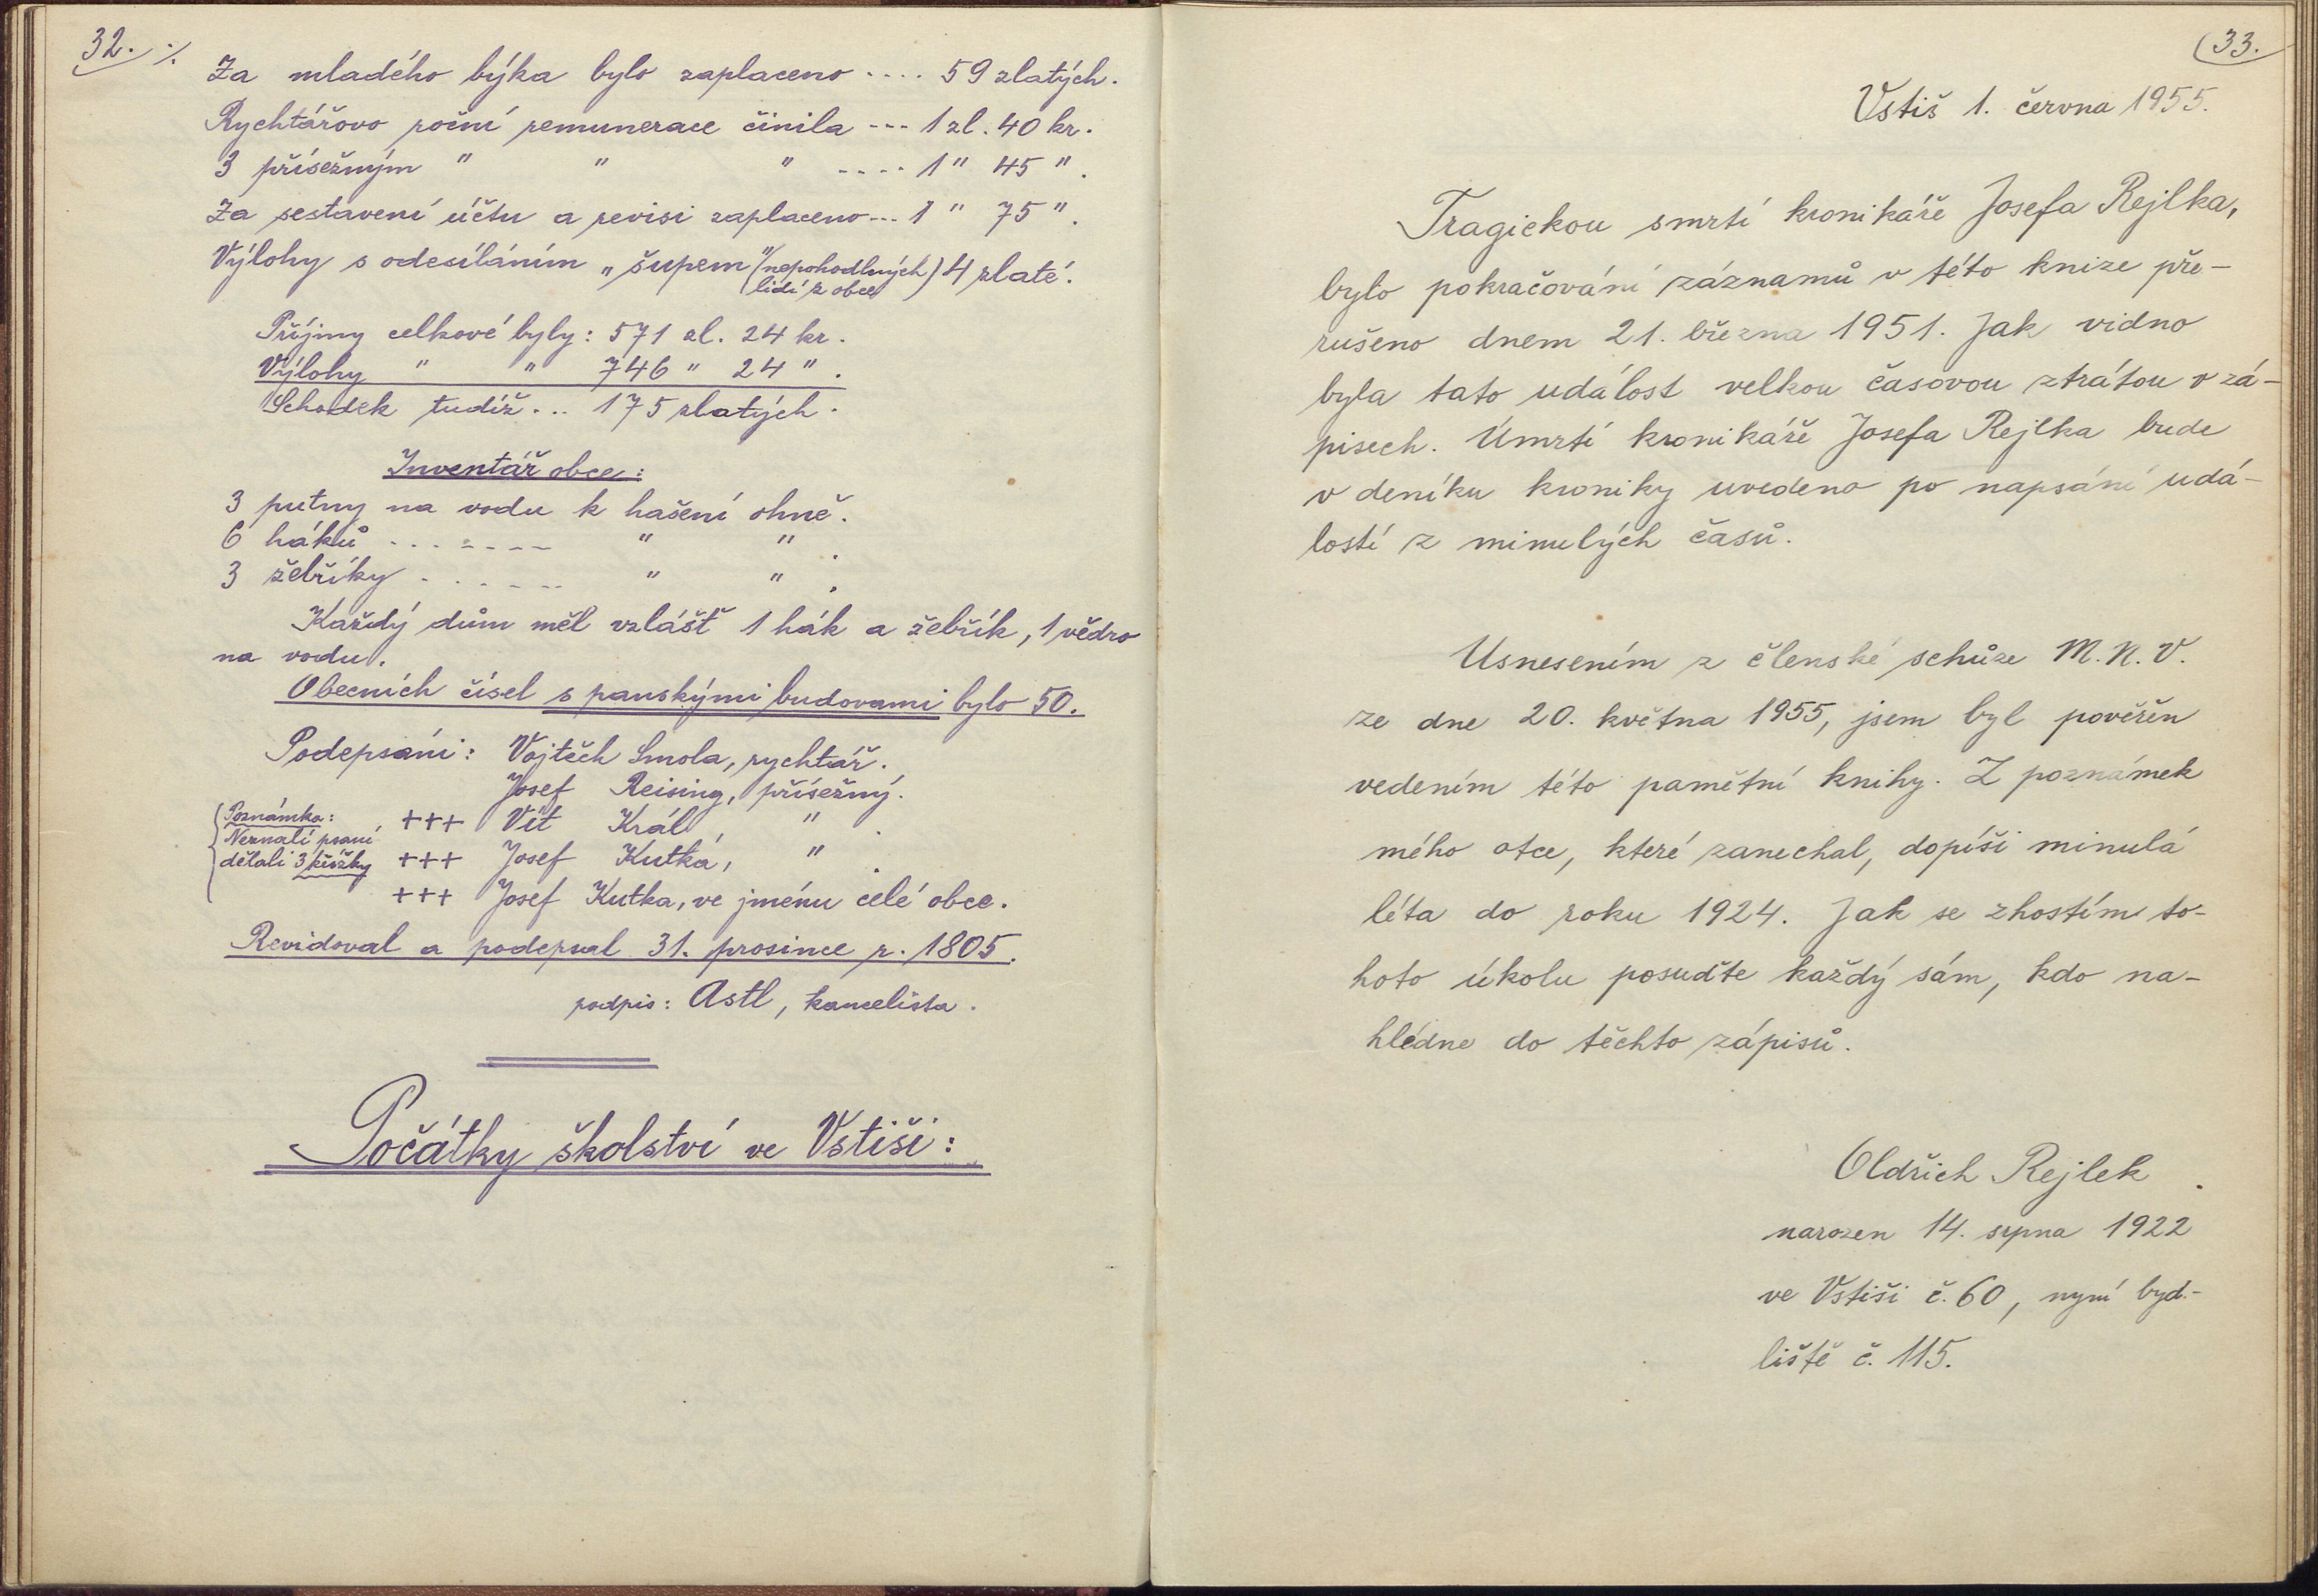 32. ·/.
Za mladého býka bylo zaplaceno .... 59 zlatých.
Rychtářovo roční remunerace činila --- 1 zl. 40 kr.
3 přísežným " " " .... 1 " 45 ".
Za sestavení účtu a revisi zaplaceno --- 1 " 75 ".
Výlohy s odesíláním „šupem" (nepohodlných lidí z obce) 4 zlaté.
Příjmy celkové byly: 571 zl. 24 kr.
Výlohy " " 746 " 24 ".
Schodek tudíž ... 175 zlatých.
Inventář obce:
3 putny na vodu k hašení ohně.
6 háků ....... " " .
3 žebříky ...... " " .
Každý dům měl vzlášť 1 hák a žebřík, 1 vědro
na vodu.
Obecních čísel s panskými budovami bylo 50.
Podepsáni: Vojtěch Smola, rychtář.
Josef Reising, přísežný.
+++ Vít Král, " .
+++ Josef Kutka, " .
+++ Josef Kutka, ve jménu celé obce.
Poznámka:
Neznalí psaní
dělali 3 křížky
Revidoval a podepsal 31. prosince r. 1805.
podpis: Astl, kancelista.
Počátky školství ve Vstiši:
33.
Vstiš 1. června 1955.
Tragickou smrtí kronikáře Josefa Rejlka,
bylo pokračování záznamů v této knize pře-
rušeno dnem 21. března 1951. Jak vidno
byla tato událost velkou časovou ztrátou v zá-
pisech. Úmrtí kronikáře Josefa Rejlka bude
v deníku kroniky uvedeno po napsání udá-
lostí z minulých časů.
Usnesením z členské schůze M.N.V.
ze dne 20. května 1955, jsem byl pověřěn
vedením této pamětní knihy. Z poznámek
mého otce, které zanechal, dopíši minulá
léta do roku 1924. Jak se zhostím to-
hoto úkolu posuďte každý sám, kdo na-
hlédne do těchto zápisů.
Oldřich Rejlek.
narozen 14. srpna 1922
ve Vstiši č. 60, nyní byd-
liště č. 115.